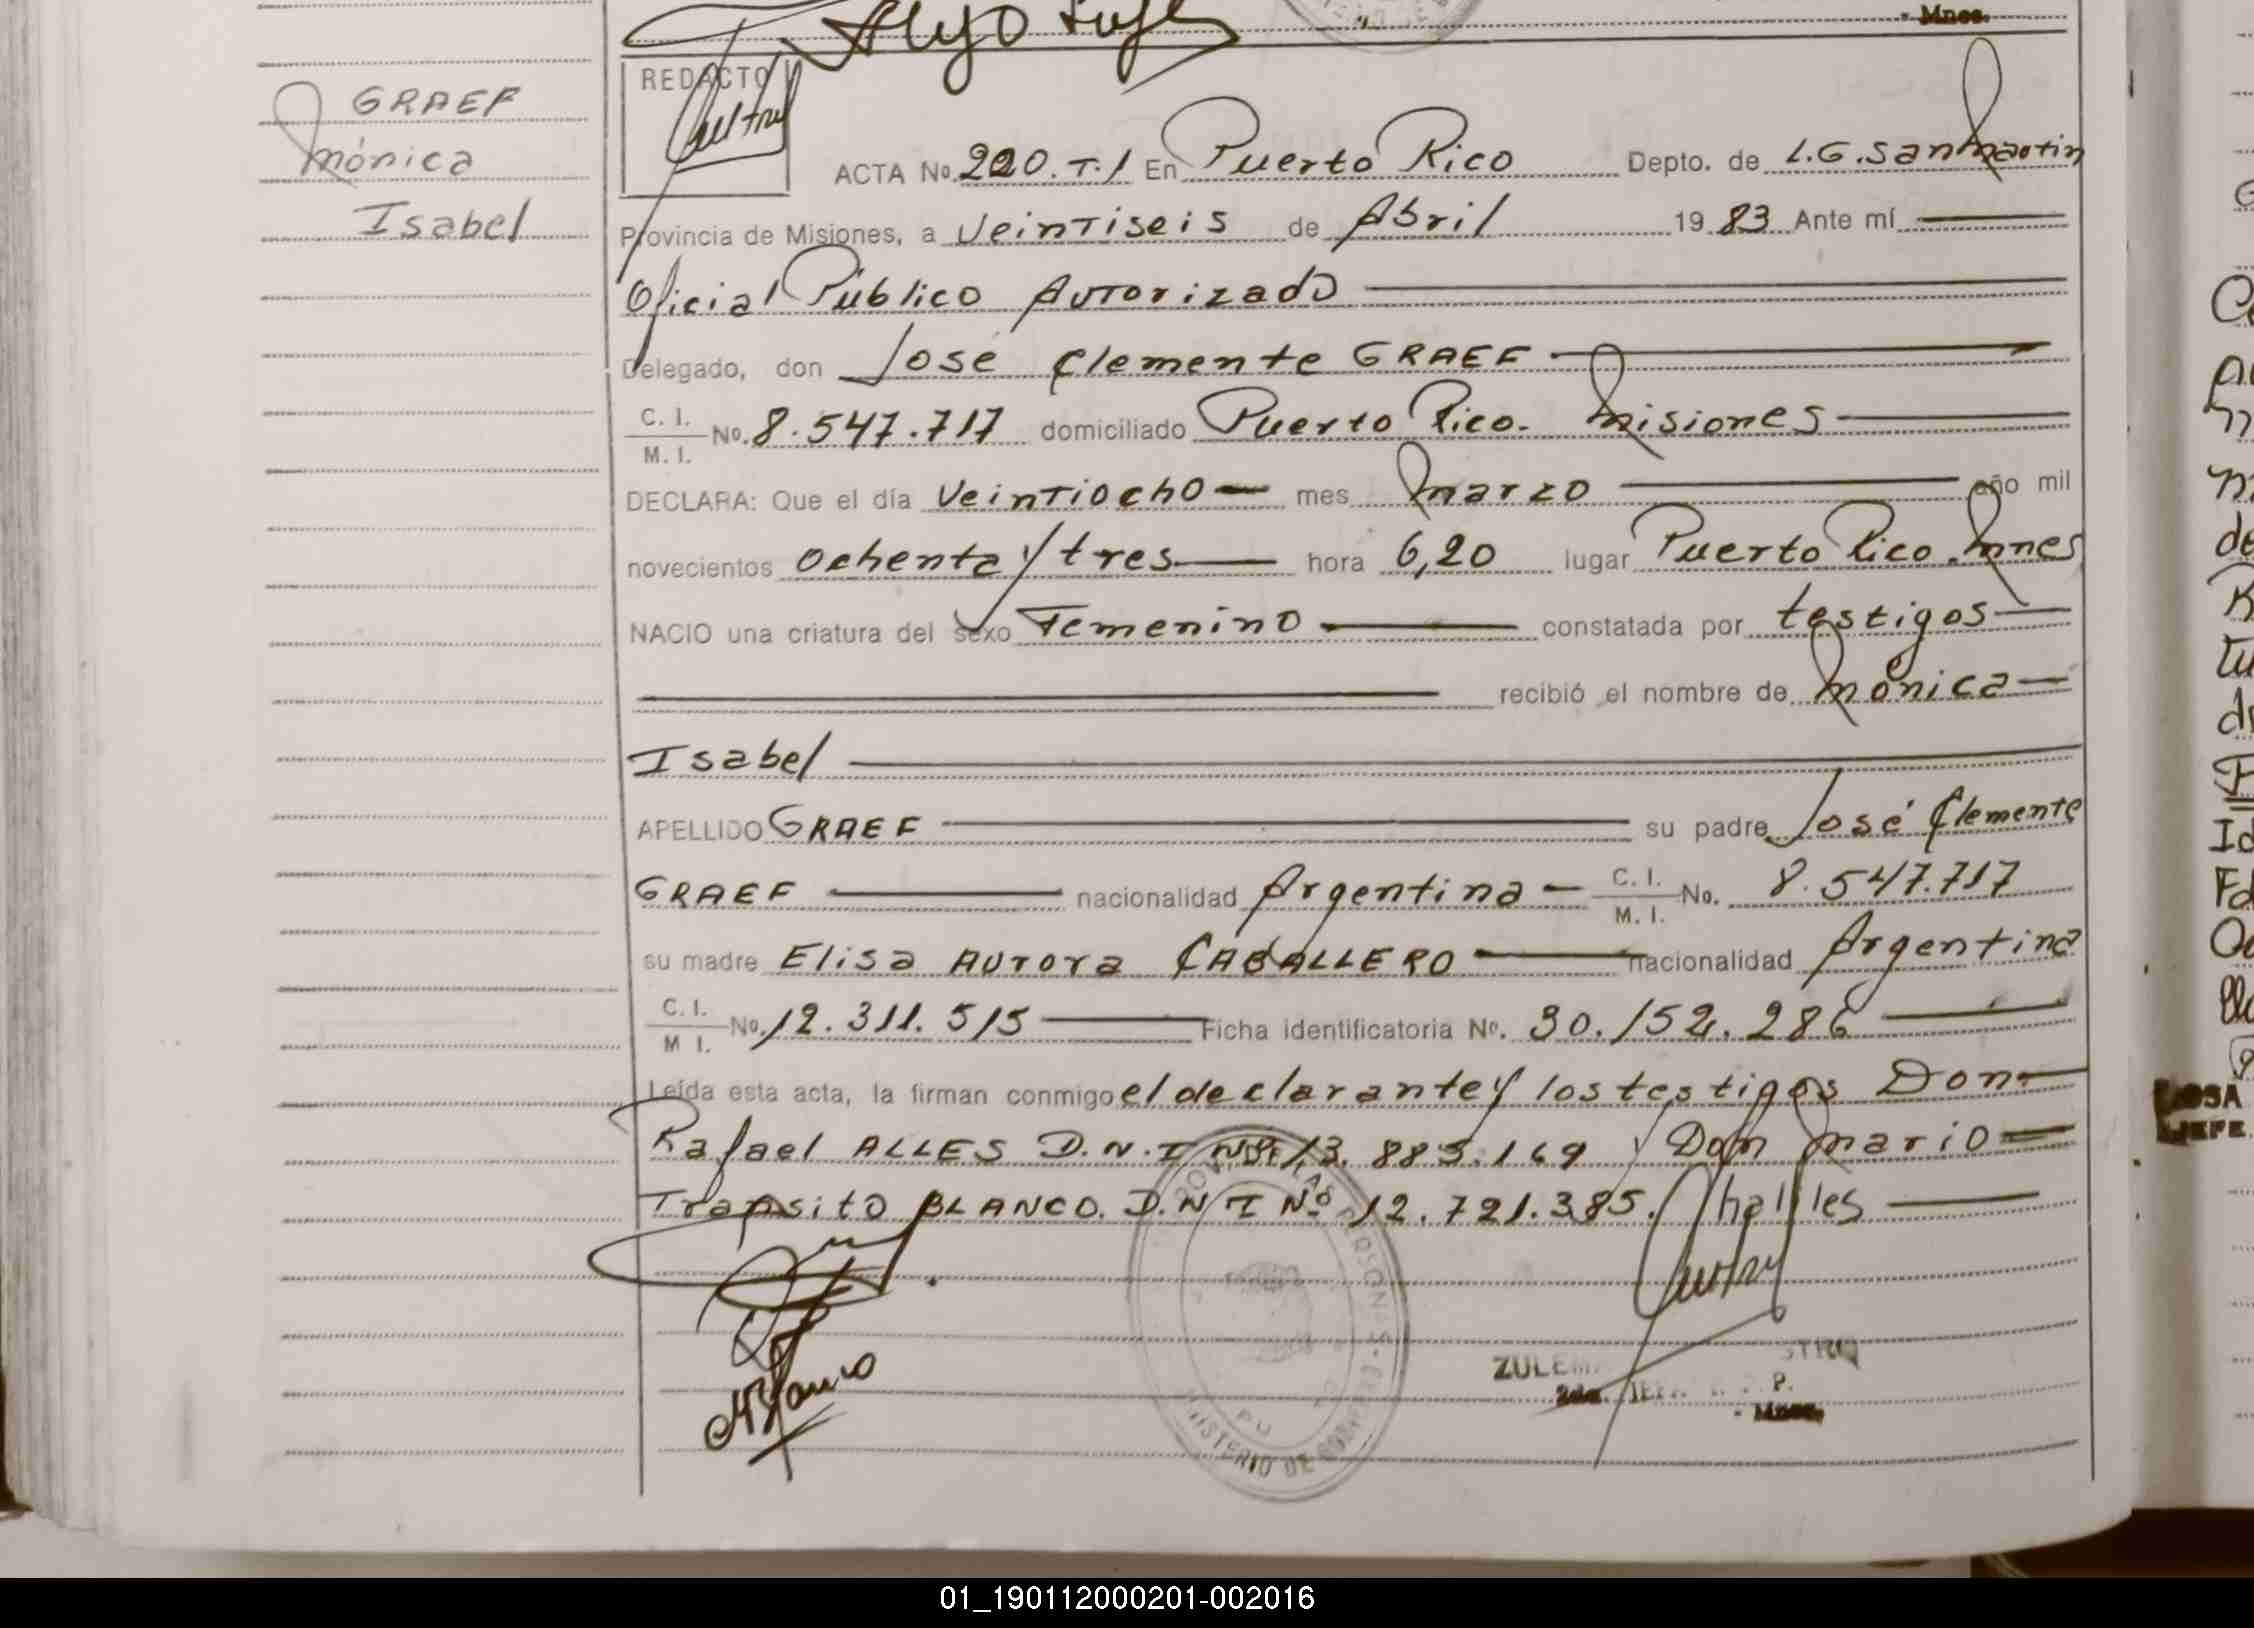 Mnes.
GRAEF
Mónica
Isabel
REDACTO
ACTA No. 220. T. 1 En Puerto Rico Depto. de L.G. San Martin
Provincia de Misiones, a veintiseis de Abril 19 83 Ante mí
Oficial Público Autorizado
Delegado, don José Clemente GRAEF
C. I.
M. I. No. 8.547.717 domiciliado Puerto Rico. Misiones
DECLARA: Que el día veintiocho mes marzo año mil
novecientos ochenta y tres hora 6,20 lugar Puerto Rico. Mnes
NACIO una criatura del sexo Femenino constatada por testigos
recibió el nombre de Mónica
Isabel
APELLIDO GRAEF su padre José Clemente
GRAEF nacionalidad Argentina C. I. M. I. No. 8.547.717
su madre Elisa Aurora CABALLERO nacionalidad Argentina
C. I.
M I. No. 12.311.515 Ficha identificatoria No. 30.152.286
Leída esta acta, la firman conmigo el declarante y los testigos Don
Rafael ALLES D.N.I Nº 13.883.169 y Don Mario
Transito BLANCO. D.N I Nº 12.721.385.
ZULEM
P.
Mnes.
MINISTERIO DE
01_190112000201-002016